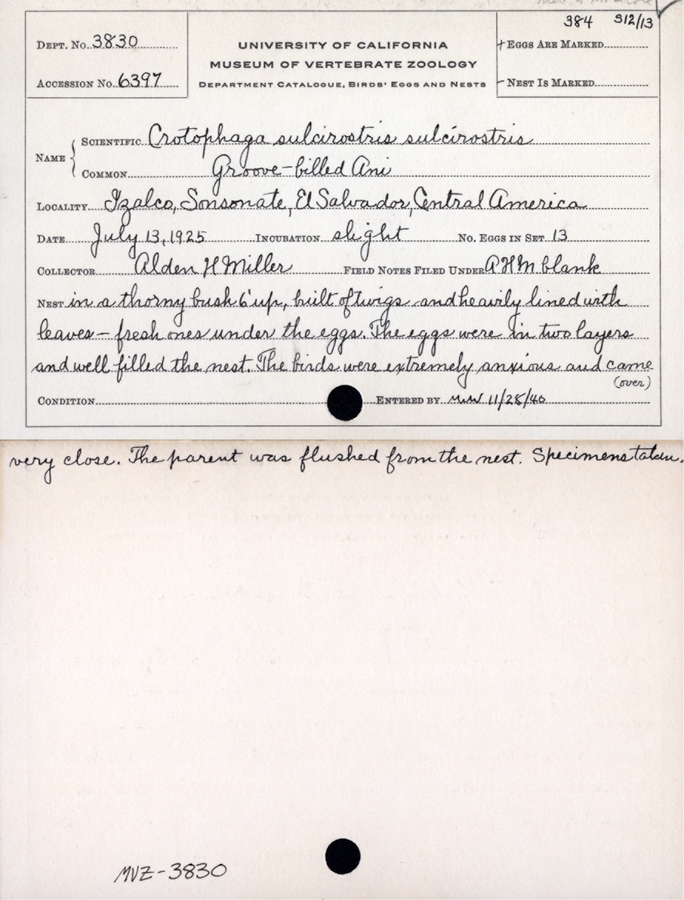 384 S12/13
DEPT. No. 3830
UNIVERSITY OF CALIFORNIA
MUSEUM OF VERTEBRATE ZOOLOGY
DEPARTMENT CATALOGUE, BIRDS' EGGS AND NESTS
+ EGGS ARE MARKED
ACCESSION No. 6397
- NEST IS MARKED
NAME { SCIENTIFIC Crotophaga sulcirostris sulcirostris
COMMON Groove-billed Ani
LOCALITY Izalco, Sonsonate, El Salvador, Central America
DATE July 13, 1925 INCUBATION slight No. EGGS IN SET 13
COLLECTOR Alden H Miller FIELD NOTES FILED UNDER AHM blank
NEST in a thorny bush 6' up, built of twigs and heavily lined with
leaves - fresh ones under the eggs. The eggs were in two layers
and well filled the nest. The birds were extremely anxious and came
(over)
CONDITION ENTERED BY 11/28/40
very close. The parent was flushed from the nest. Specimens taken.
MVZ-3830